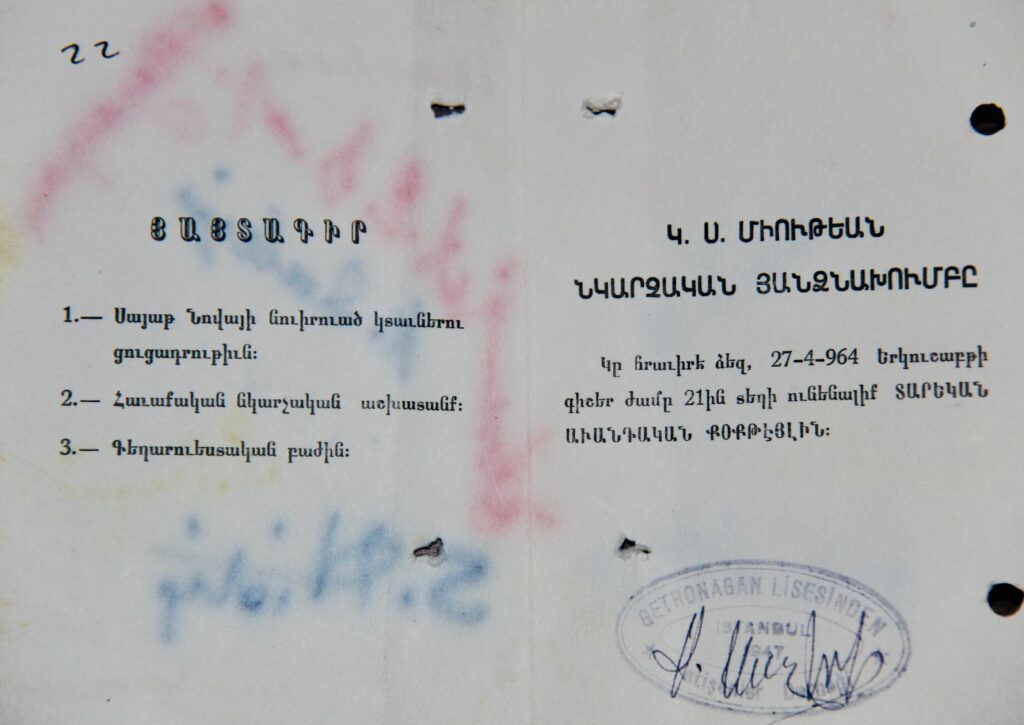 22
ՅԱՅՏԱԳԻՐ
1.— Սայաթ Նովայի նուիրուած կտաւներու
ցուցադրութիւն։
2.— Հաւաքական նկարչական աշխատանք։
3.— Գեղարուեստական բաժին։
Կ. Ս. ՄԻՈՒԹԵԱՆ
ՆԿԱՐՉԱԿԱՆ ՅԱՆՁՆԱԽՈՒՄԲԸ
Կը հրաւիրէ ձեզ, 27-4-964 Երկուշաբթի
գիշեր ժամը 21ին տեղի ունենալիք ՏԱՐԵԿԱՆ
ԱՒԱՆԴԱԿԱՆ ՔՕՔԹԷՅԼԻՆ։
GETRONAGAN LİSESİNDEN
İSTANBUL